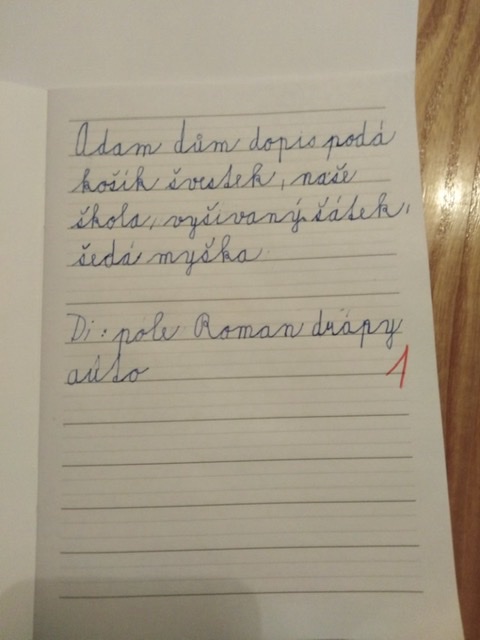 Adam dům dopis podá
košík švestek, naše
škola, vyšívaný šátek,
šedá myška
Di: póle Roman drápy
aúto
1